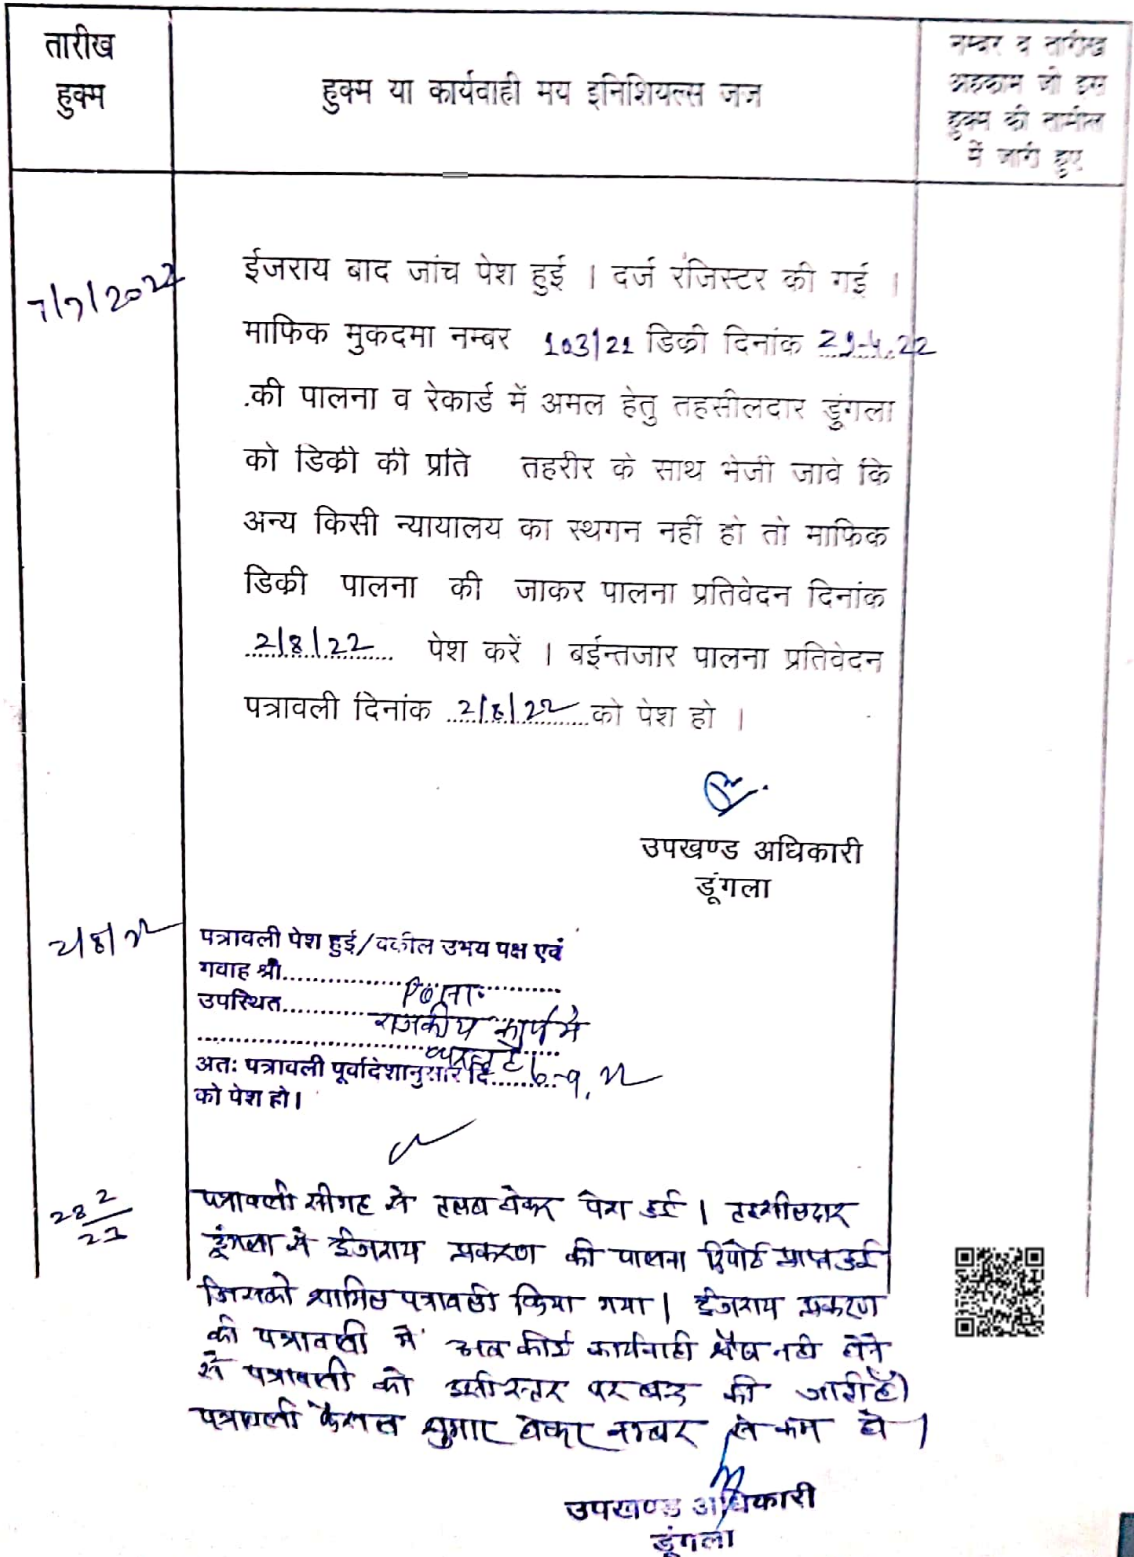 तारीख
हुक्म
हुक्म या कार्यवाही मय इनिशियल्स जज
नम्बर व तारीख
अहकाम जो इस
हुक्म की तामील
में जारी हुए
7/7/2022
ईजराय बाद जांच पेश हुई । दर्ज रजिस्टर की गई ।
माफिक मुकदमा नम्बर 103/21 डिक्री दिनांक 29-4.22
.की पालना व रेकार्ड में अमल हेतु तहसीलदार डुंगला
को डिकी की प्रति तहरीर के साथ भेजी जावे कि
अन्य किसी न्यायालय का स्थगन नहीं हो तो माफिक
डिकी पालना की जाकर पालना प्रतिवेदन दिनांक
2/8/22 पेश करें । बईन्तजार पालना प्रतिवेदन
पत्रावली दिनांक 2/8/22 को पेश हो ।
उपखण्ड अधिकारी
डूंगला
2/8/22
पत्रावली पेश हुई/वकील उभय पक्ष एवं
गवाह श्री..............................
उपस्थित..............
राजकीय कार्य में
व्यस्त है
अतः पत्रावली पूर्वादेशानुसार दि......... 6-9.22
को पेश हो।
28 2/23
पत्रावली सीगह से तलब होकर पेश हुई । तहसीलदार
डूंगला से ईजराय प्रकरण की पालना रिपोर्ट प्राप्त हुई
जिसको शामिल पत्रावली किया गया । ईजराय प्रकरण
की पत्रावली में अब कोई कार्यवाही शेष नही होने
से पत्रावली को इसी स्तर पर बन्द की जाती है।
पत्रावली फैसल शुमार होकर नम्बर से कम हो ।
उपखण्ड अधिकारी
डूंगला